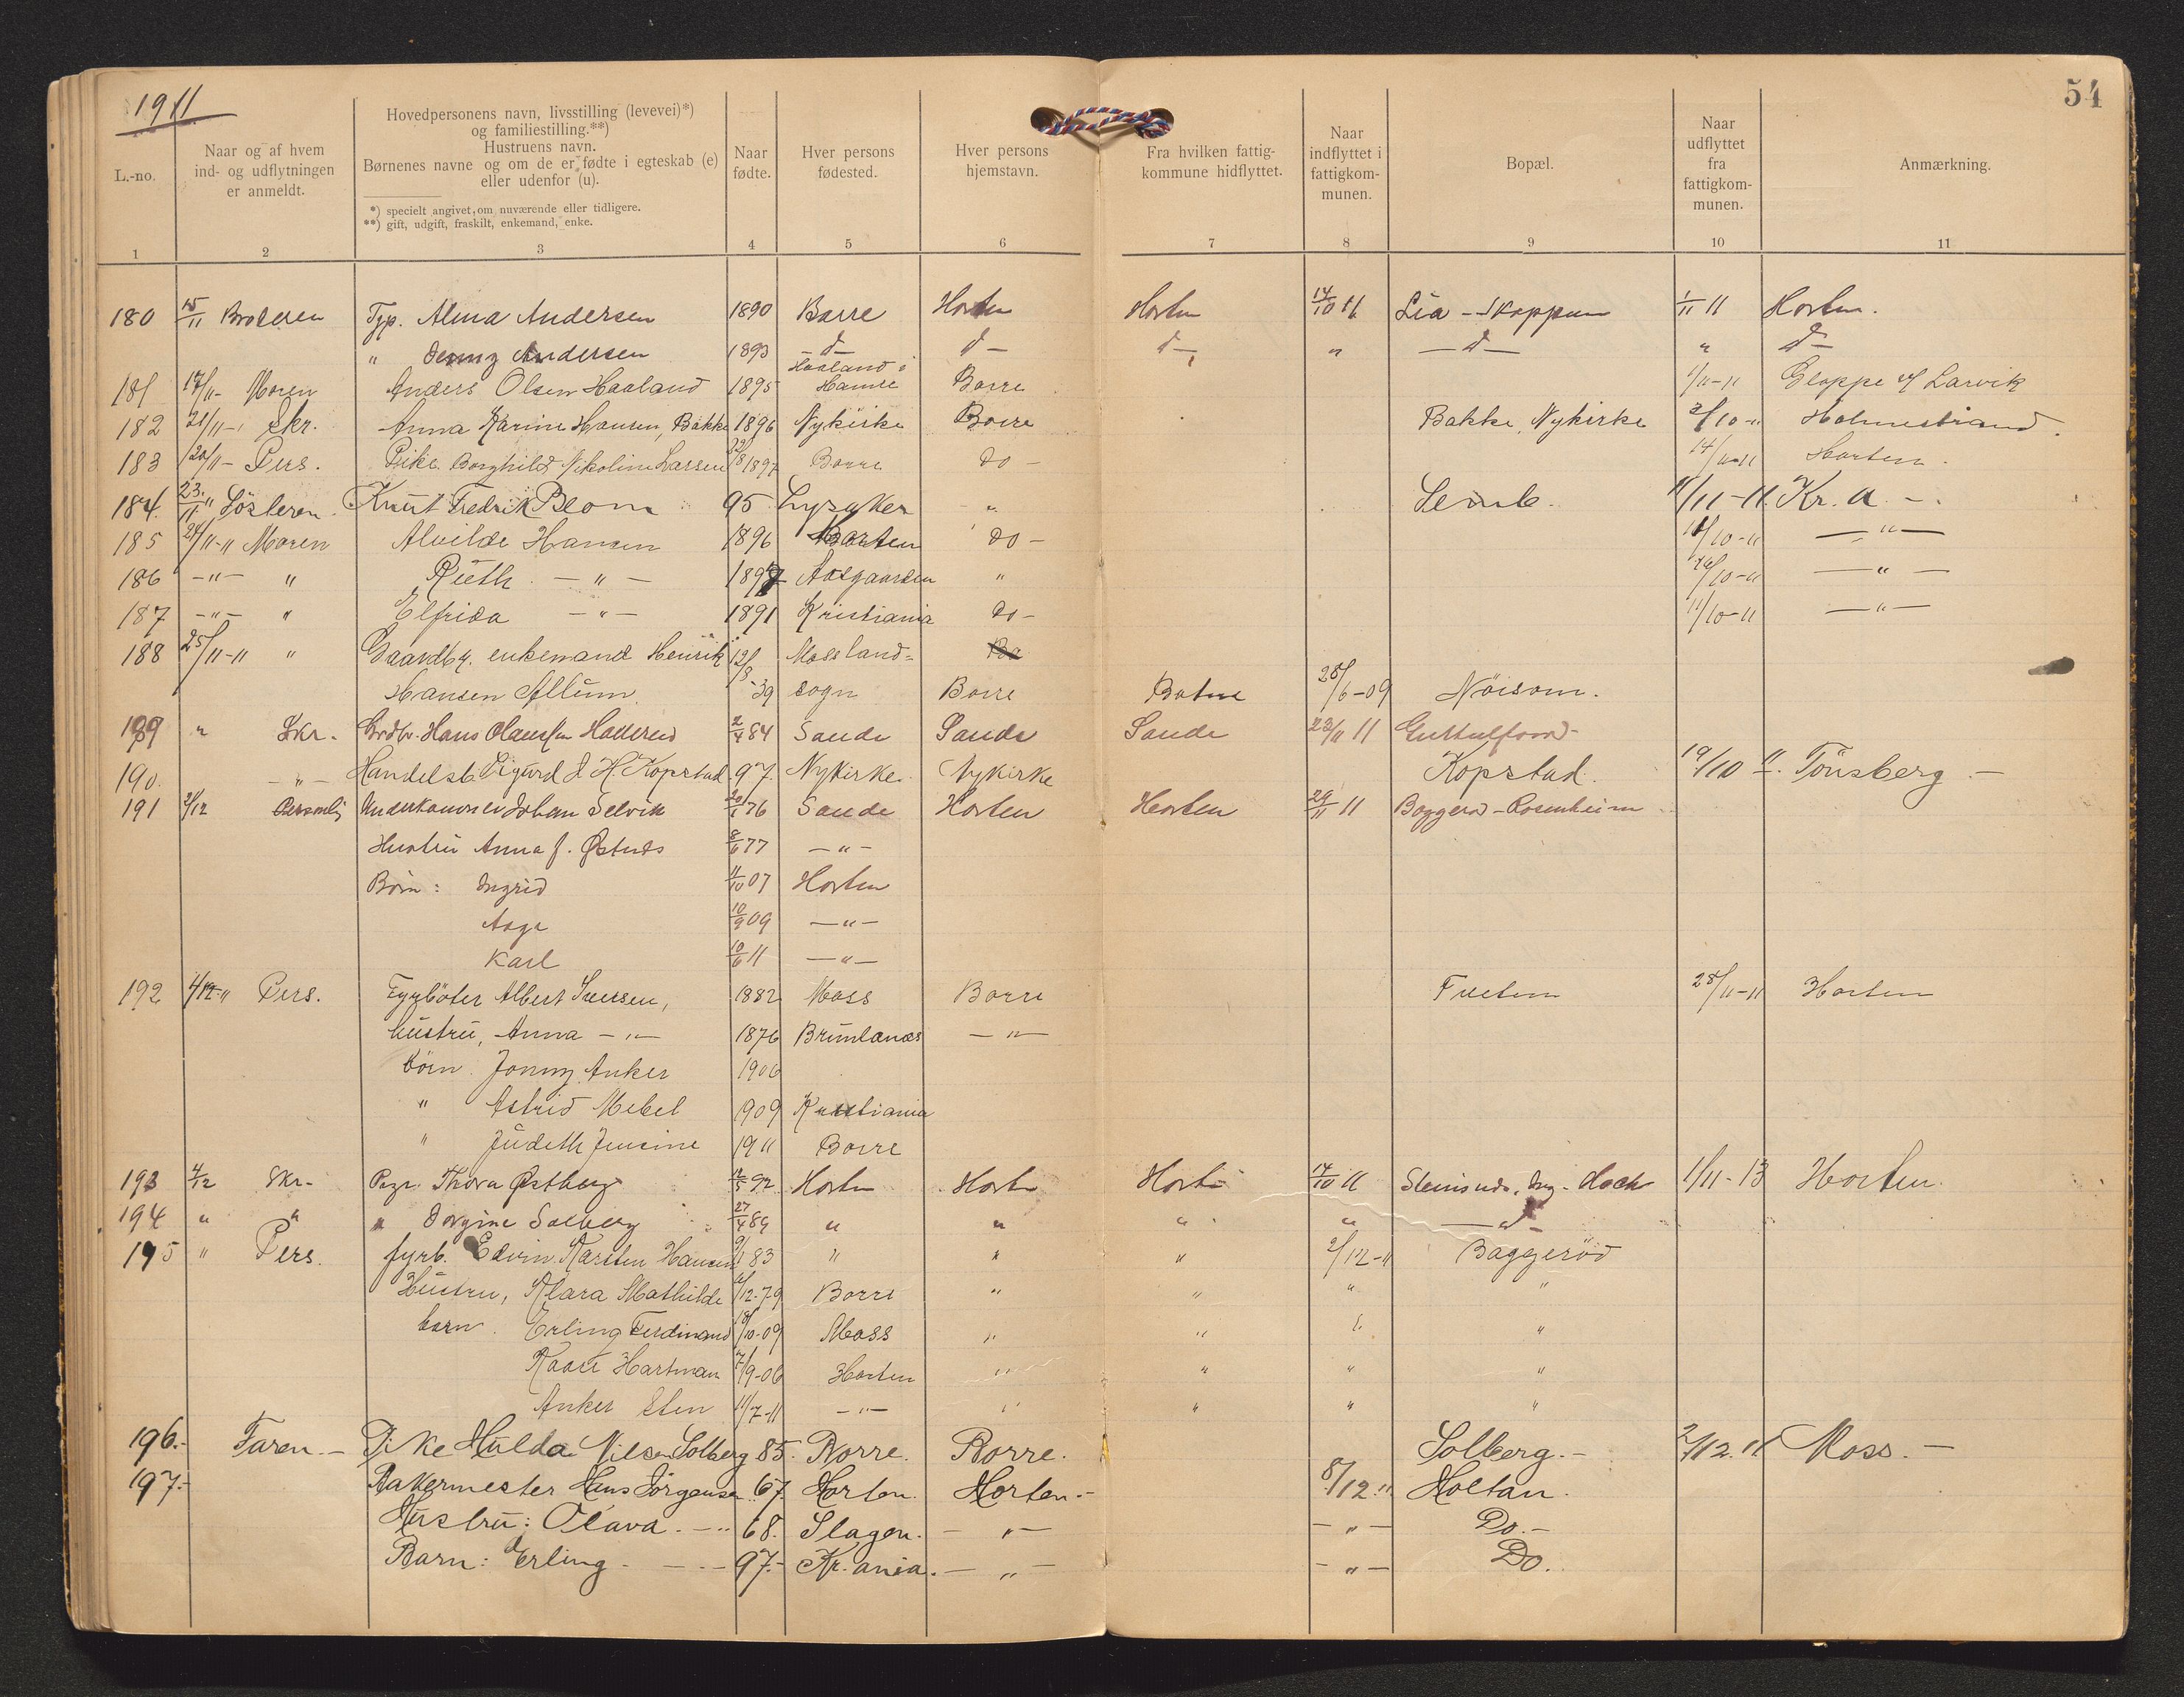 1911
54
L.-no.
Naar og af hvem ind- og udflytningen er anmeldt.
Hovedpersonens navn, livsstilling (levevei)*) og familiestilling.**) Hustruens navn. Børnenes navne og om de er fødte i egteskab (e) eller udenfor (u).
*) specielt angivet, om nuværende eller tidligere.
**) gift, ugift, fraskilt, enkemand, enke.
Naar fødte.
Hver persons fødested.
Hver persons hjemstavn.
Fra hvilken fattigkommune hidflyttet.
Naar indflyttet i fattigkommunen.
Bopæl.
Naar udflyttet fra fattigkommunen.
Anmærkning.
1 2 3 4 5 6 7 8 9 10 11
180 15/11 Broderen Typ. Alma Andersen 1890 Borre Horten Horten 14/10 11 Lia - Skoppum 1/11 11 Horten.
" Jenny Andersen 1893 - d - d - d - " - d - " d -
181 17/11- Moren Anders Olsen Haaland 1895 Haaland i Hamre Borre 1/11-11 Gloppe pr Larvik
182 21/11- Skr. Anna Karine Hansen, Bakke 1896 Nykirke Borre Bakke, Nykirke 2/10-11 Holmestrand.
183 20/11- Pers. Pike Borghild Nikoline Larsen 22/8 1897 Borre do - 14/11-11 Horten.
184. 23/11 " Søsteren Knut Fredrik Blom 95 Lysaker " Semb. 11/11-11. Kr. a. -
185 24/11-11 Moren Alvilde Hansen 1896 Horten do - 11/10-11 - " -
186 - " - " Ruth - " - 1897 Aasgaarden " /10-11 - " -
187 - " - " Elfrida - " - 1891 Kristiania do - 11/10-11 - " -
188 25/11-11 " Gaardbr. enkemand Henrik 12/8 Moss land=
Hansen Allum -39 sogn Borre Botne 28/6-09 Nøisom.
189 " Skr. Grdbr. Hans Olaussen Hallerud 2/4 84 Sande Sande Sande 23/11 11
190. - " - Handelsb. Sigurd J. H. Kopstad. 97. Nykirke. Nykirke Kopstad. 19/10 11. Tönsberg. -
191 2/12 Personlig Underkanoner Johan Selvik 20/1 76 Sande Horten Horten 29/11 11 Baggerød - Rosenheim
Hustru Anna f. Østnes 8/6 77 - " -
Børn: Ingrid 11/10 07 Horten
Aage 10/9 09 - " -
Karl 10/6 11 - " -
192 4/12-11 Pers. Fyrbøter Albert Iversen, 1882 Moss Borre 28/11-11 Horten
hustru, Anna - " - 1876 Brunlanæs - " -
børn. Jonny Anker 1906
" Astrid Mebel 1909 Kristiania
" Judeth Jensine 1911 Borre
193 4/12 Skr. Thora Østberg 2/5 92 Horten Horten Horten 14/10 11 1/11-13 Horten.
194 " " " Jorgine Solberg 27/4 89 " " " " - " -
195 " Pers. fyrb. Edvin Karsten Hansen 9/1 83 " " " 2/12-11 Baggerød
Hustru, Klara Mathilde /12-79 Borre " " " "
børn. Erling Ferdinand 18/10-09 Moss " " " "
Kaare Hartman 7/9-06 Horten " " " "
Anker Sten 11/7-11 - " - " " " "
196.- Faren. - Pike Hulda Nilsen Solberg 85. Borre. Borre. Solberg. - 2/12. 11 Moss. -
197.- Bakermester Hans Jörgensen 67. Horten. Horten. - 8/12. 11 Holtan.
Hustru: Olava. - " 68. Slagen. - " - - " - Do. -
Barn: Erling. - - - 97. - Kr.ania. - " - - " - Do.